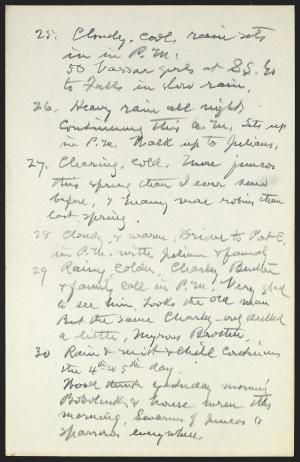 25. Cloudy, cool, rain sets
in in P.M.
50 Vassar girls at S.S. Go
to Falls in slow rain.
26. Heavy rain all night,
Continuing this A.M. Lets up
in P.M. Walk up to Julians,
27. Clearing, cold, more juncos
this spring than I ever saw
before, & many more robins than
last spring.
28 Cloudy & warm, Drive to
in P.M. with Julian & family
29 Rainy, colder, Charley Benton
& family call in P.M. Very glad
to see him, looks the old man
But the same Charley - only
a little, Myron Brother,
30 Rain & mist & chill continues
the 4th or 5th day.
Wood thrush yesterday morning
Bobolink & house wren this
morning, Swarms of juncos &
sparrows everywhere.